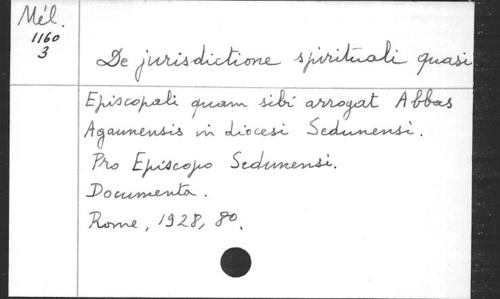 Mél.
1160
3
De jurisdictione spirituali quasi
Episcopali quam sibi arrogat Abbas
Agaunensis in diocesi Sedunensi.
Pro Episcopo Sedunensi.
Documenta.
Rome, 1928, 8o.